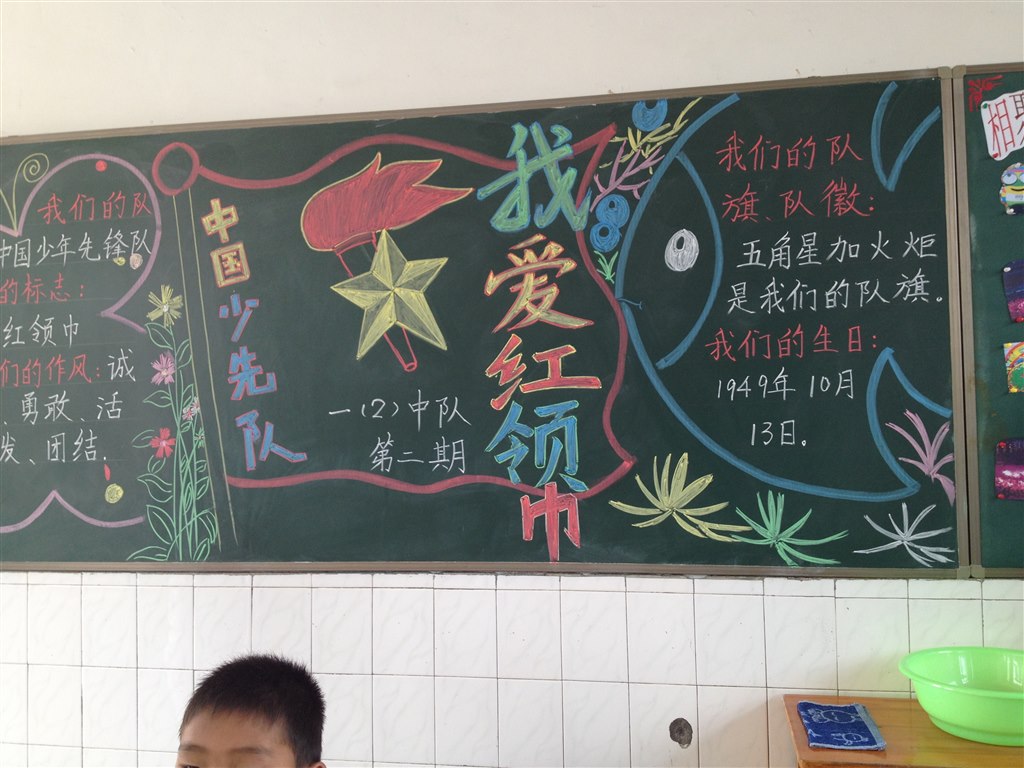 我们的队
中国少年先锋队
的标志：
红领巾
们的作风：诚
、勇敢、活
发、团结.
中国少先队
一（2）中队
第二期
我爱红领巾
我们的队
旗、队徽：
五角星加火炬
是我们的队旗。
我们的生日：
1949年10月
13日。
相聚